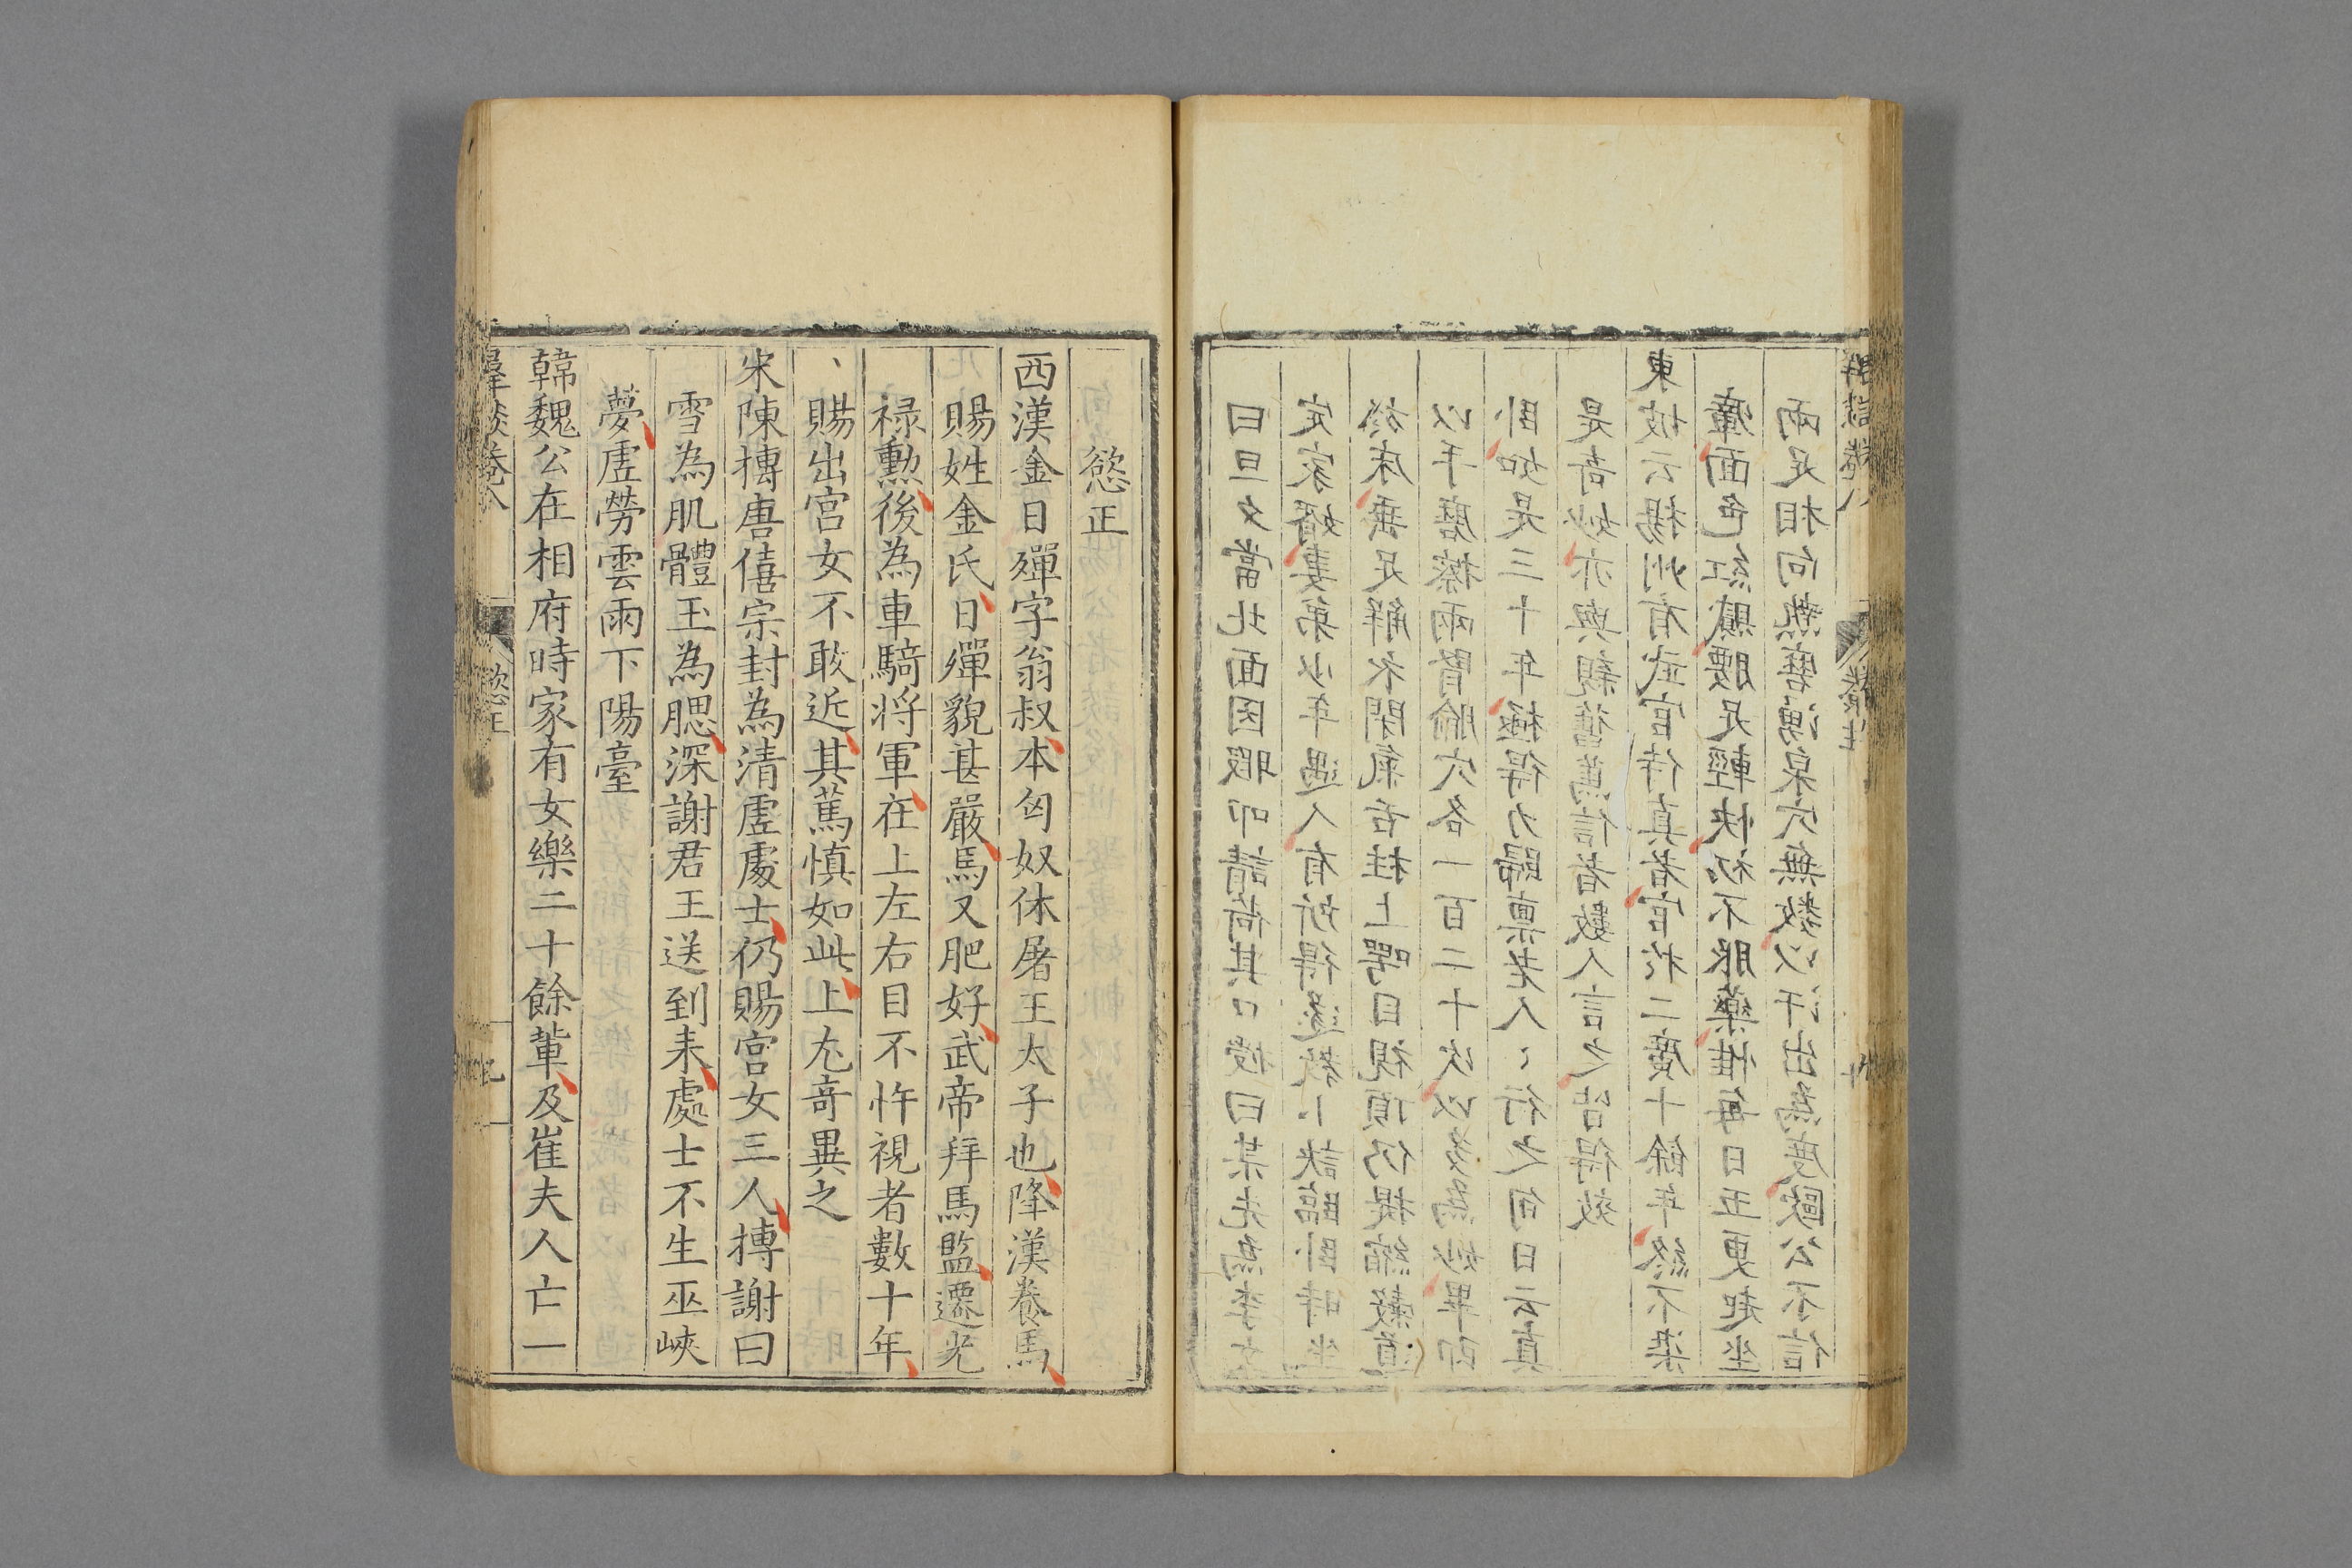 曰旦夕當北面因暇叩請荷其口授曰某先為
定家婿妻弟少年遇人有所得遂教小訣臨卧時坐
於床垂足解衣閉氣舌柱上腭目視頂仍提縮縠道
以手磨擦兩腎腧穴各一百二十次以多為妙畢即
卧如是三十年極得力歸稟老人〻行之旬日云真
是奇妙亦與親舊篤信者數人言之皆得效
東坡云揚州有武官侍真者官於二廣十餘年終不染
瘴面色紅膩腰足輕快初不服藥惟每日五更起坐
兩足相向熱磨湧泉穴無數以汗出為度歐公不信
群談卷八 養生
慾正
西漢金日殫字翁叔本匈奴休屠王太子也降漢養馬
賜姓金氏日殫貌甚嚴馬又肥好武帝拜馬監遷光
禄勲後為車騎将軍在上左右目不忤視者數十年
賜出宫女不敢近其篤慎如此上尤竒異之
宋陳摶唐僖宗封為清虛處士仍賜宫女三人摶謝曰
雪為肌體玉為腮深謝君王送到来處士不生巫峽
夢虛勞雲雨下陽臺
韓魏公在相府時家有女樂二十餘輩及崔夫人亡一
羣談卷八 慾正